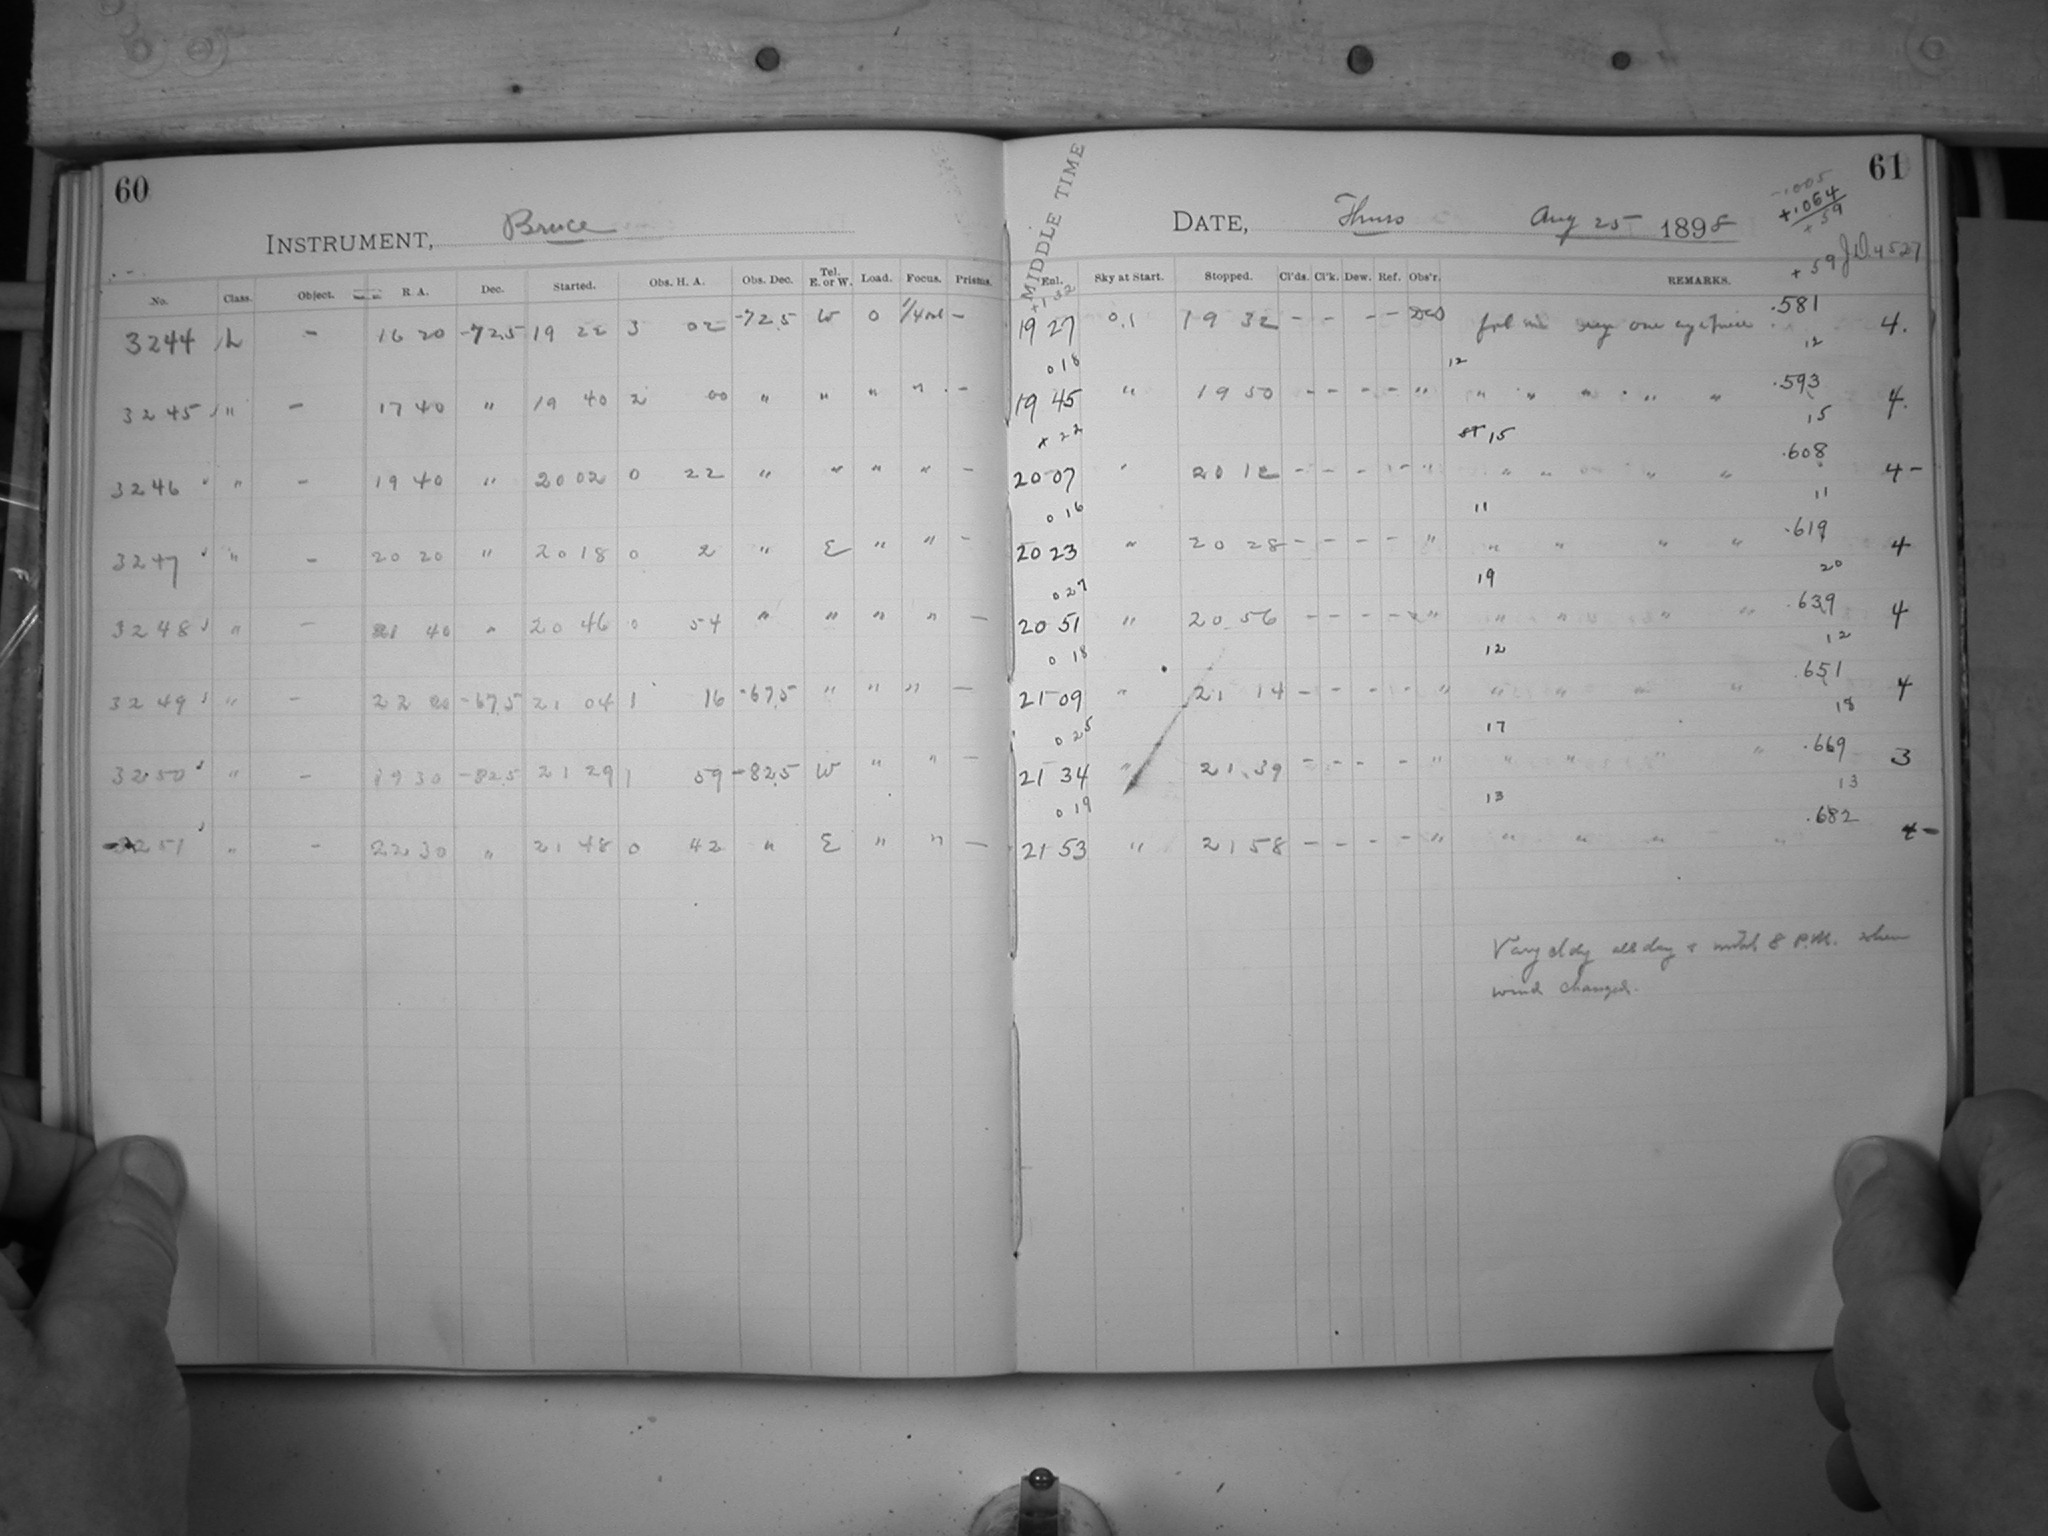 60
INSTRUMENT, Bruce
No. Class. Object. R. A. Dec. Started. Obs. H. A. Obs. Dec. Tel. E. or W. Load. Focus. Prisms.
3244 L – 16 20 -72.5 19 22 3 02 -72.5 W 0 –
3245 " – 17 40 " 19 40 2 00 " " " " –
3246 " – 19 40 " 20 02 0 22 " " " " –
3247 " – 20 20 " 20 18 0 2 " E " " –
3248 " – 21 40 " 20 46 0 54 " " " " –
3249 " – 22 20 -67.5 21 04 1 16 -67.5 " " " –
3250 " – 19 30 -82.5 21 29 1 59 -82.5 W " " –
3251 " – 22 30 " 21 48 0 42 " E " " –
61
MIDDLE TIME
DATE, Thurs Aug 25 1898
-1005
+1064
+59
+59 J.D. 4527
Enl. Sky at Start. Stopped. Cl'ds. Cl'k. Dew. Ref. Obs'r. REMARKS.
+132
19 27 0.1 19 32 – – – – one eyepiece .581 4.
0 18 12 12
19 45 " 19 50 – – – – " " " " " " .593 4.
+22 15 15
20 07 " 20 12 – – – – " " " " " .608 4-
0 16 11 11
20 23 " 20 28 – – – – " " " " " .619 4
0 27 19 20
20 51 " 20 56 – – – – " " " " " .639 4
0 18 12 12
21 09 " 21 14 – – – – " " " " " .651 4
0 25 17 18
21 34 " 21 39 – – – – " " " " " .669 3
0 19 13 13
21 53 " 21 58 – – – – " " " " " .682 4-
Very cldy all day & until 8 P.M. when
wind changed.